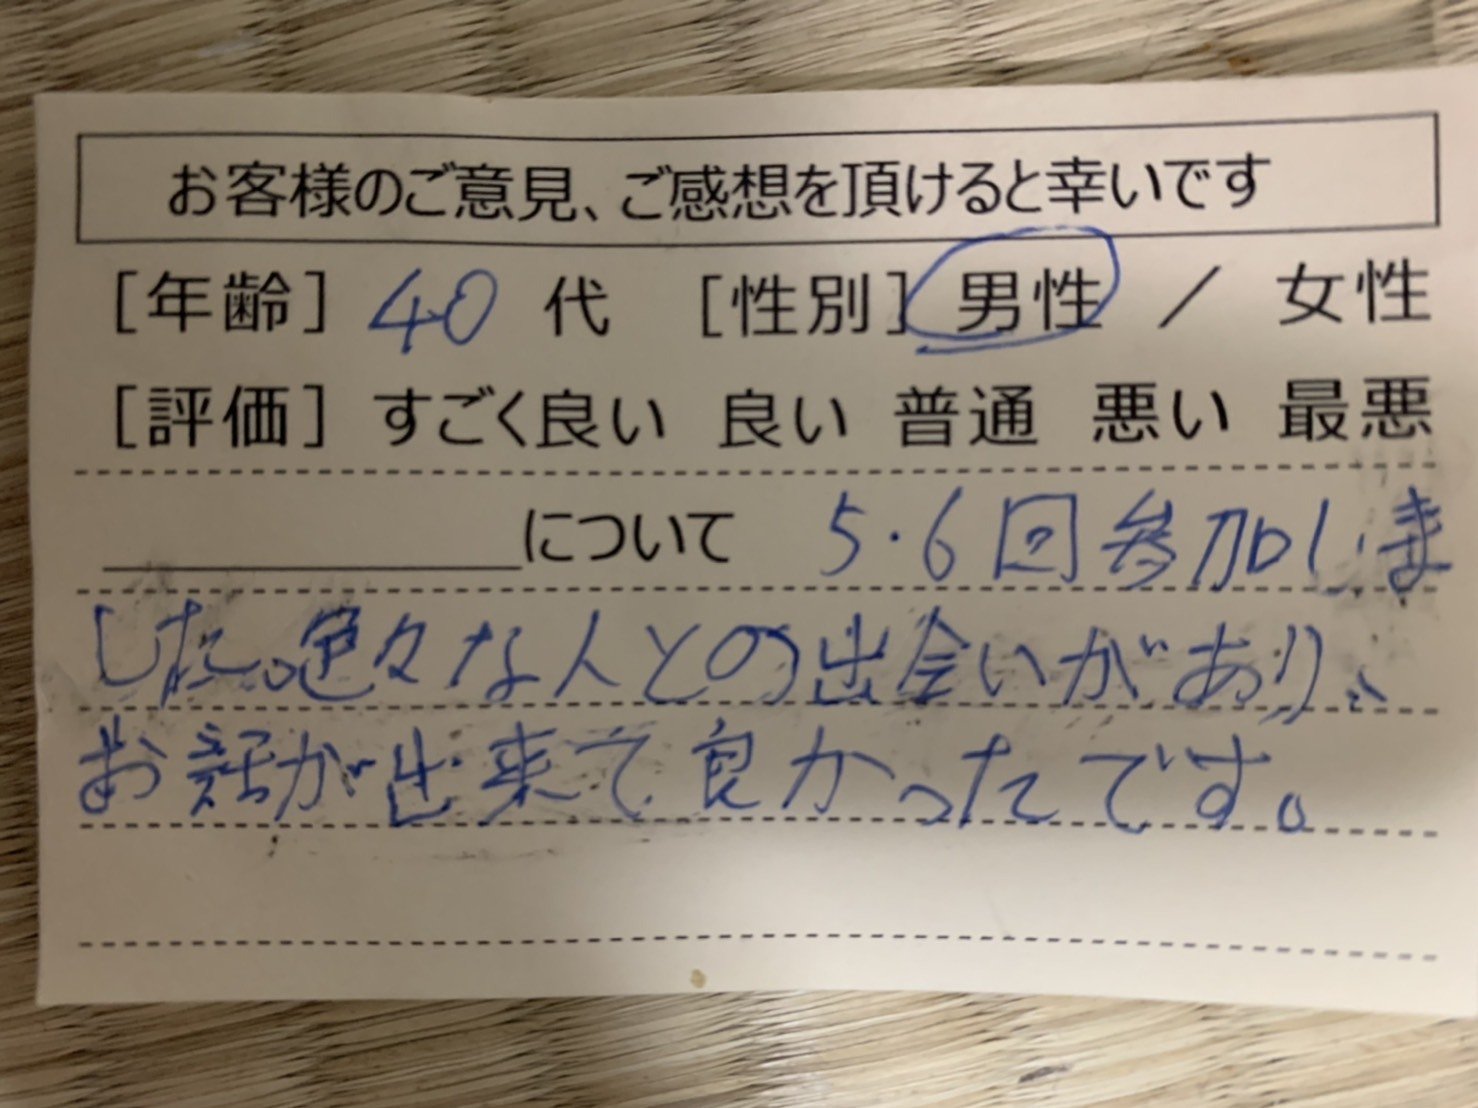 お客様のご意見、ご感想を頂けると幸いです
[年齢] 40 代 [性別] 男性 / 女性
[評価] すごく良い 良い 普通 悪い 最悪
について 5・6回参加しま
した。色々な人との出会いがあり、
お話が出来て良かったです。